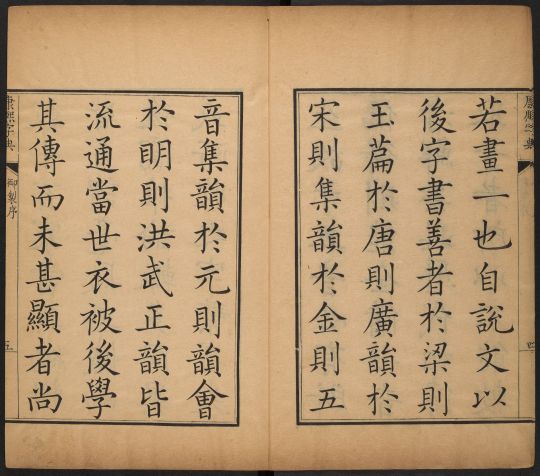 康熙字典
四
若畫一也自說文以
後字書善者於梁則
玉篇於唐則廣韻於
宋則集韻於金則五
音集韻於元則韻會
於明則洪武正韻皆
流通當世衣被後學
其傳而未甚顯者尚
康熙字典
御製序
五